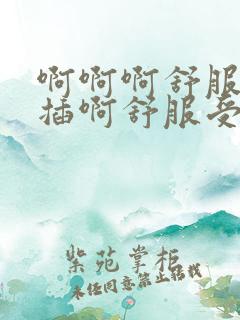 啊啊啊舒服
插啊舒服受
紫苑掌柜
未经同意禁止转载